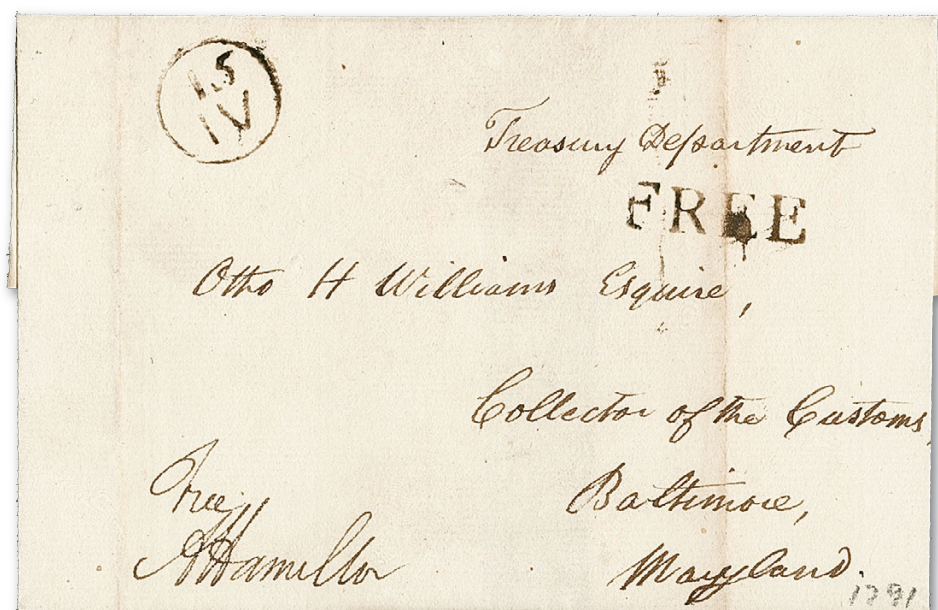 15
IV
Treasury Department
FREE
Otho H Williams Esquire,
Collector of the Customs,
Baltimore,
Free
AHamilton
Maryland.
1791